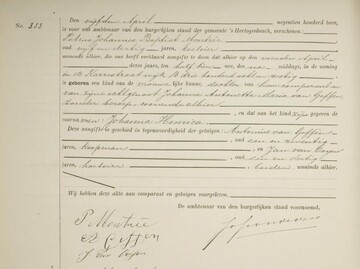 No. 353
Den vijfden April negentien honderd toen,
is voor ons ambtenaar van den burgerlijken stand der gemeente 's Hertogenbosch, verschenen
Petrus Johannes Baptist Montrée
oud vijf en dertig jaren, koetsier
wonende alhier, die ons heeft verklaard aangifte te doen dat alhier op den vierden April
dezes jaars, ten half tien ure, des middags, in de woning
in de straat wijk B drie honderd acht
is geboren een kind van de vrouwelijke kunne, dochter van hem comparant en
van zijne echtgenoot Johanna Antonetta Maria van Geffen
zonder beroep wonende alhier
, en dat aan het kind zijn gegeven de
voornamen Johanna Henrica.
Deze aangifte is geschied in tegenwoordigheid der getuigen: Antonius van Geffen
, oud een en twintig
jaren, koopman, en Jan van
, oud een en dertig
jaren, beiden wonende alhier.
Wij hebben deze akte aan comparant en getuigen voorgelezen.
De ambtenaar van den burgerlijken stand voornoemd,
P Montrée
Geffen
J van